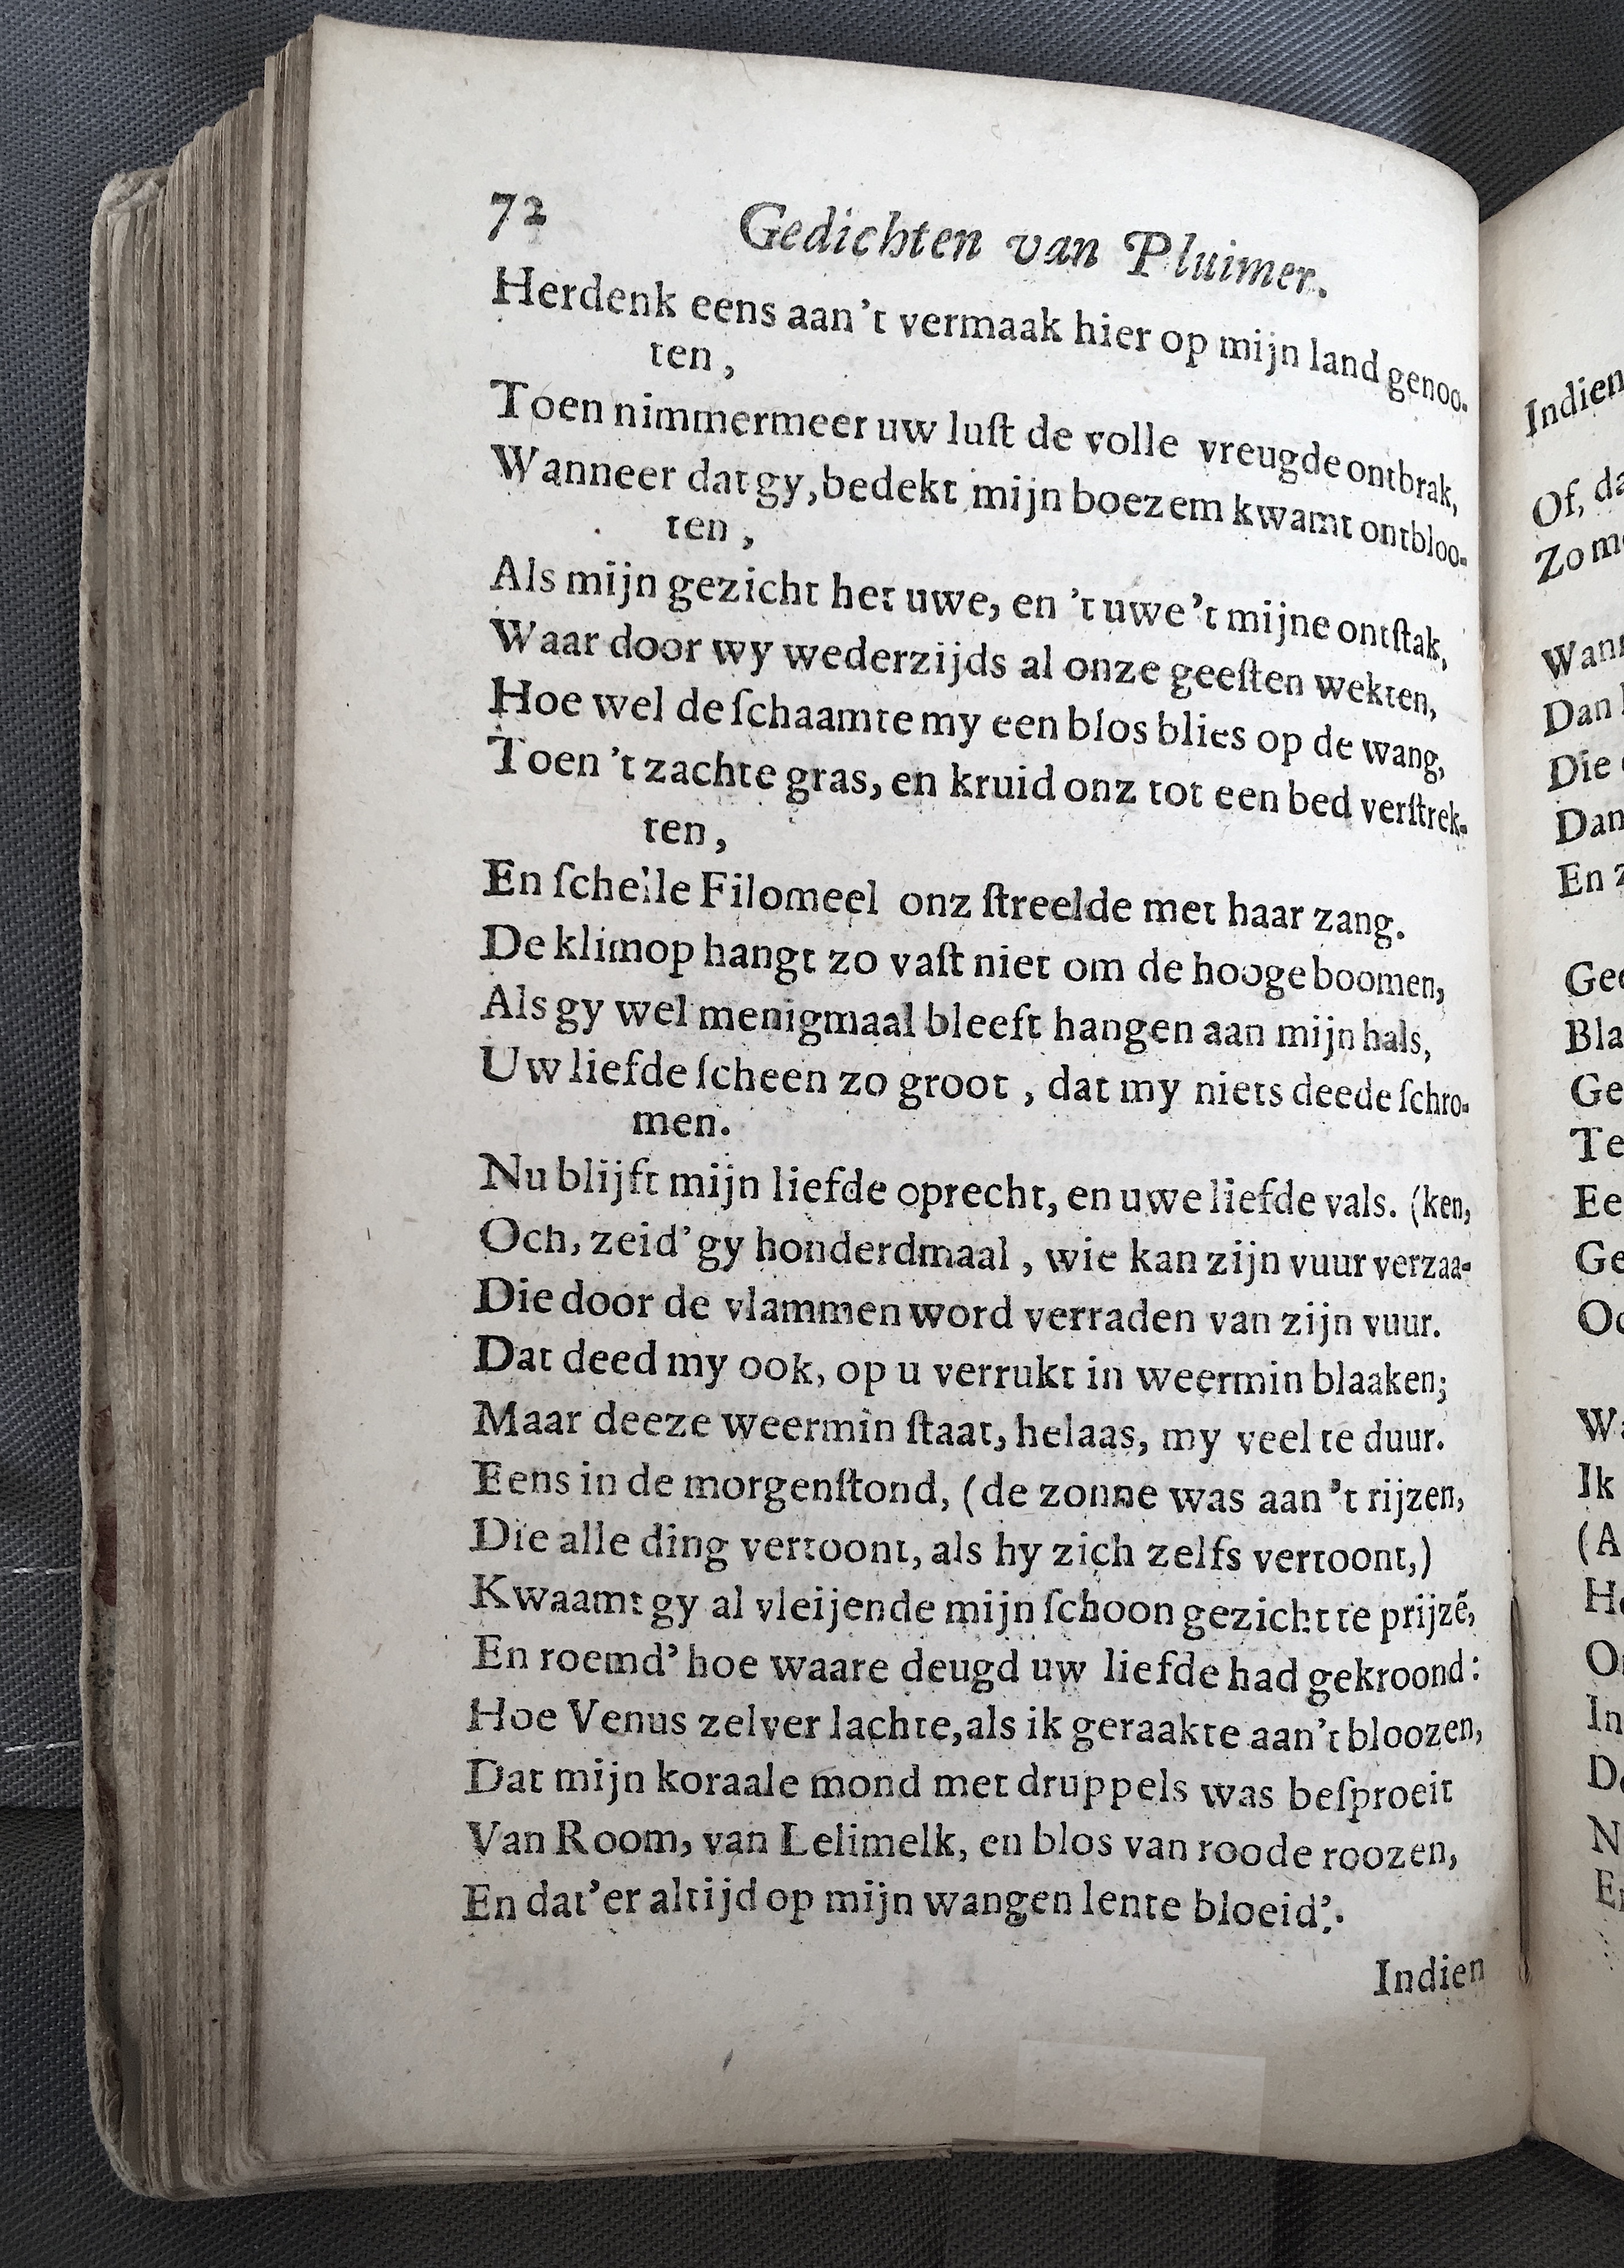 72 Gedichten van Pluimer.
Herdenk eens aan 't vermaak hier op mijn land genoo-
ten,
Toen nimmermeer uw luſt de volle vreugde ontbrak,
Wanneer dat gy, bedekt mijn boezem kwamt ontbloo-
ten,
Als mijn gezicht het uwe, en 't uwe 't mijne ontſtak,
Waar door wy wederzijds al onze geeſten wekten,
Hoe wel de ſchaamte my een blos blies op de wang,
Toen 't zachte gras, en kruid onz tot een bed verſtrek-
ten,
En ſchelle Filomeel onz ſtreelde met haar zang.
De klimop hangt zo vaſt niet om de hooge boomen,
Als gy wel menigmaal bleeft hangen aan mijn hals,
Uw liefde ſcheen zo groot, dat my niets deede ſchro-
men.
Nu blijft mijn liefde oprecht, en uwe liefde vals. (ken,
Och, zeid' gy honderdmaal, wie kan zijn vuur verzaa-
Die door de vlammen word verraden van zijn vuur.
Dat deed my ook, op u verrukt in weermin blaaken;
Maar deeze weermin ſtaat, helaas, my veel te duur.
Eens in de morgenſtond, (de zonne was aan 't rijzen,
Die alle ding vertoont, als hy zich zelfs vertoont,)
Kwaamt gy al vleijende mijn ſchoon gezicht te prijzẽ,
En roemd' hoe waare deugd uw liefde had gekroond:
Hoe Venus zelver lachte, als ik geraakte aan 't bloozen,
Dat mijn koraale mond met druppels was beſproeit
Van Room, van Lelimelk, en blos van roode roozen,
En dat'er altijd op mijn wangen lente bloeid'.
Indien
Indien
Of, da
Zo m
Wan
Dan
Die
Dan
En z
Gee
Bla
Ge
Te
Ee
Ge
Oc
Wa
Ik
(A
He
In
De
N